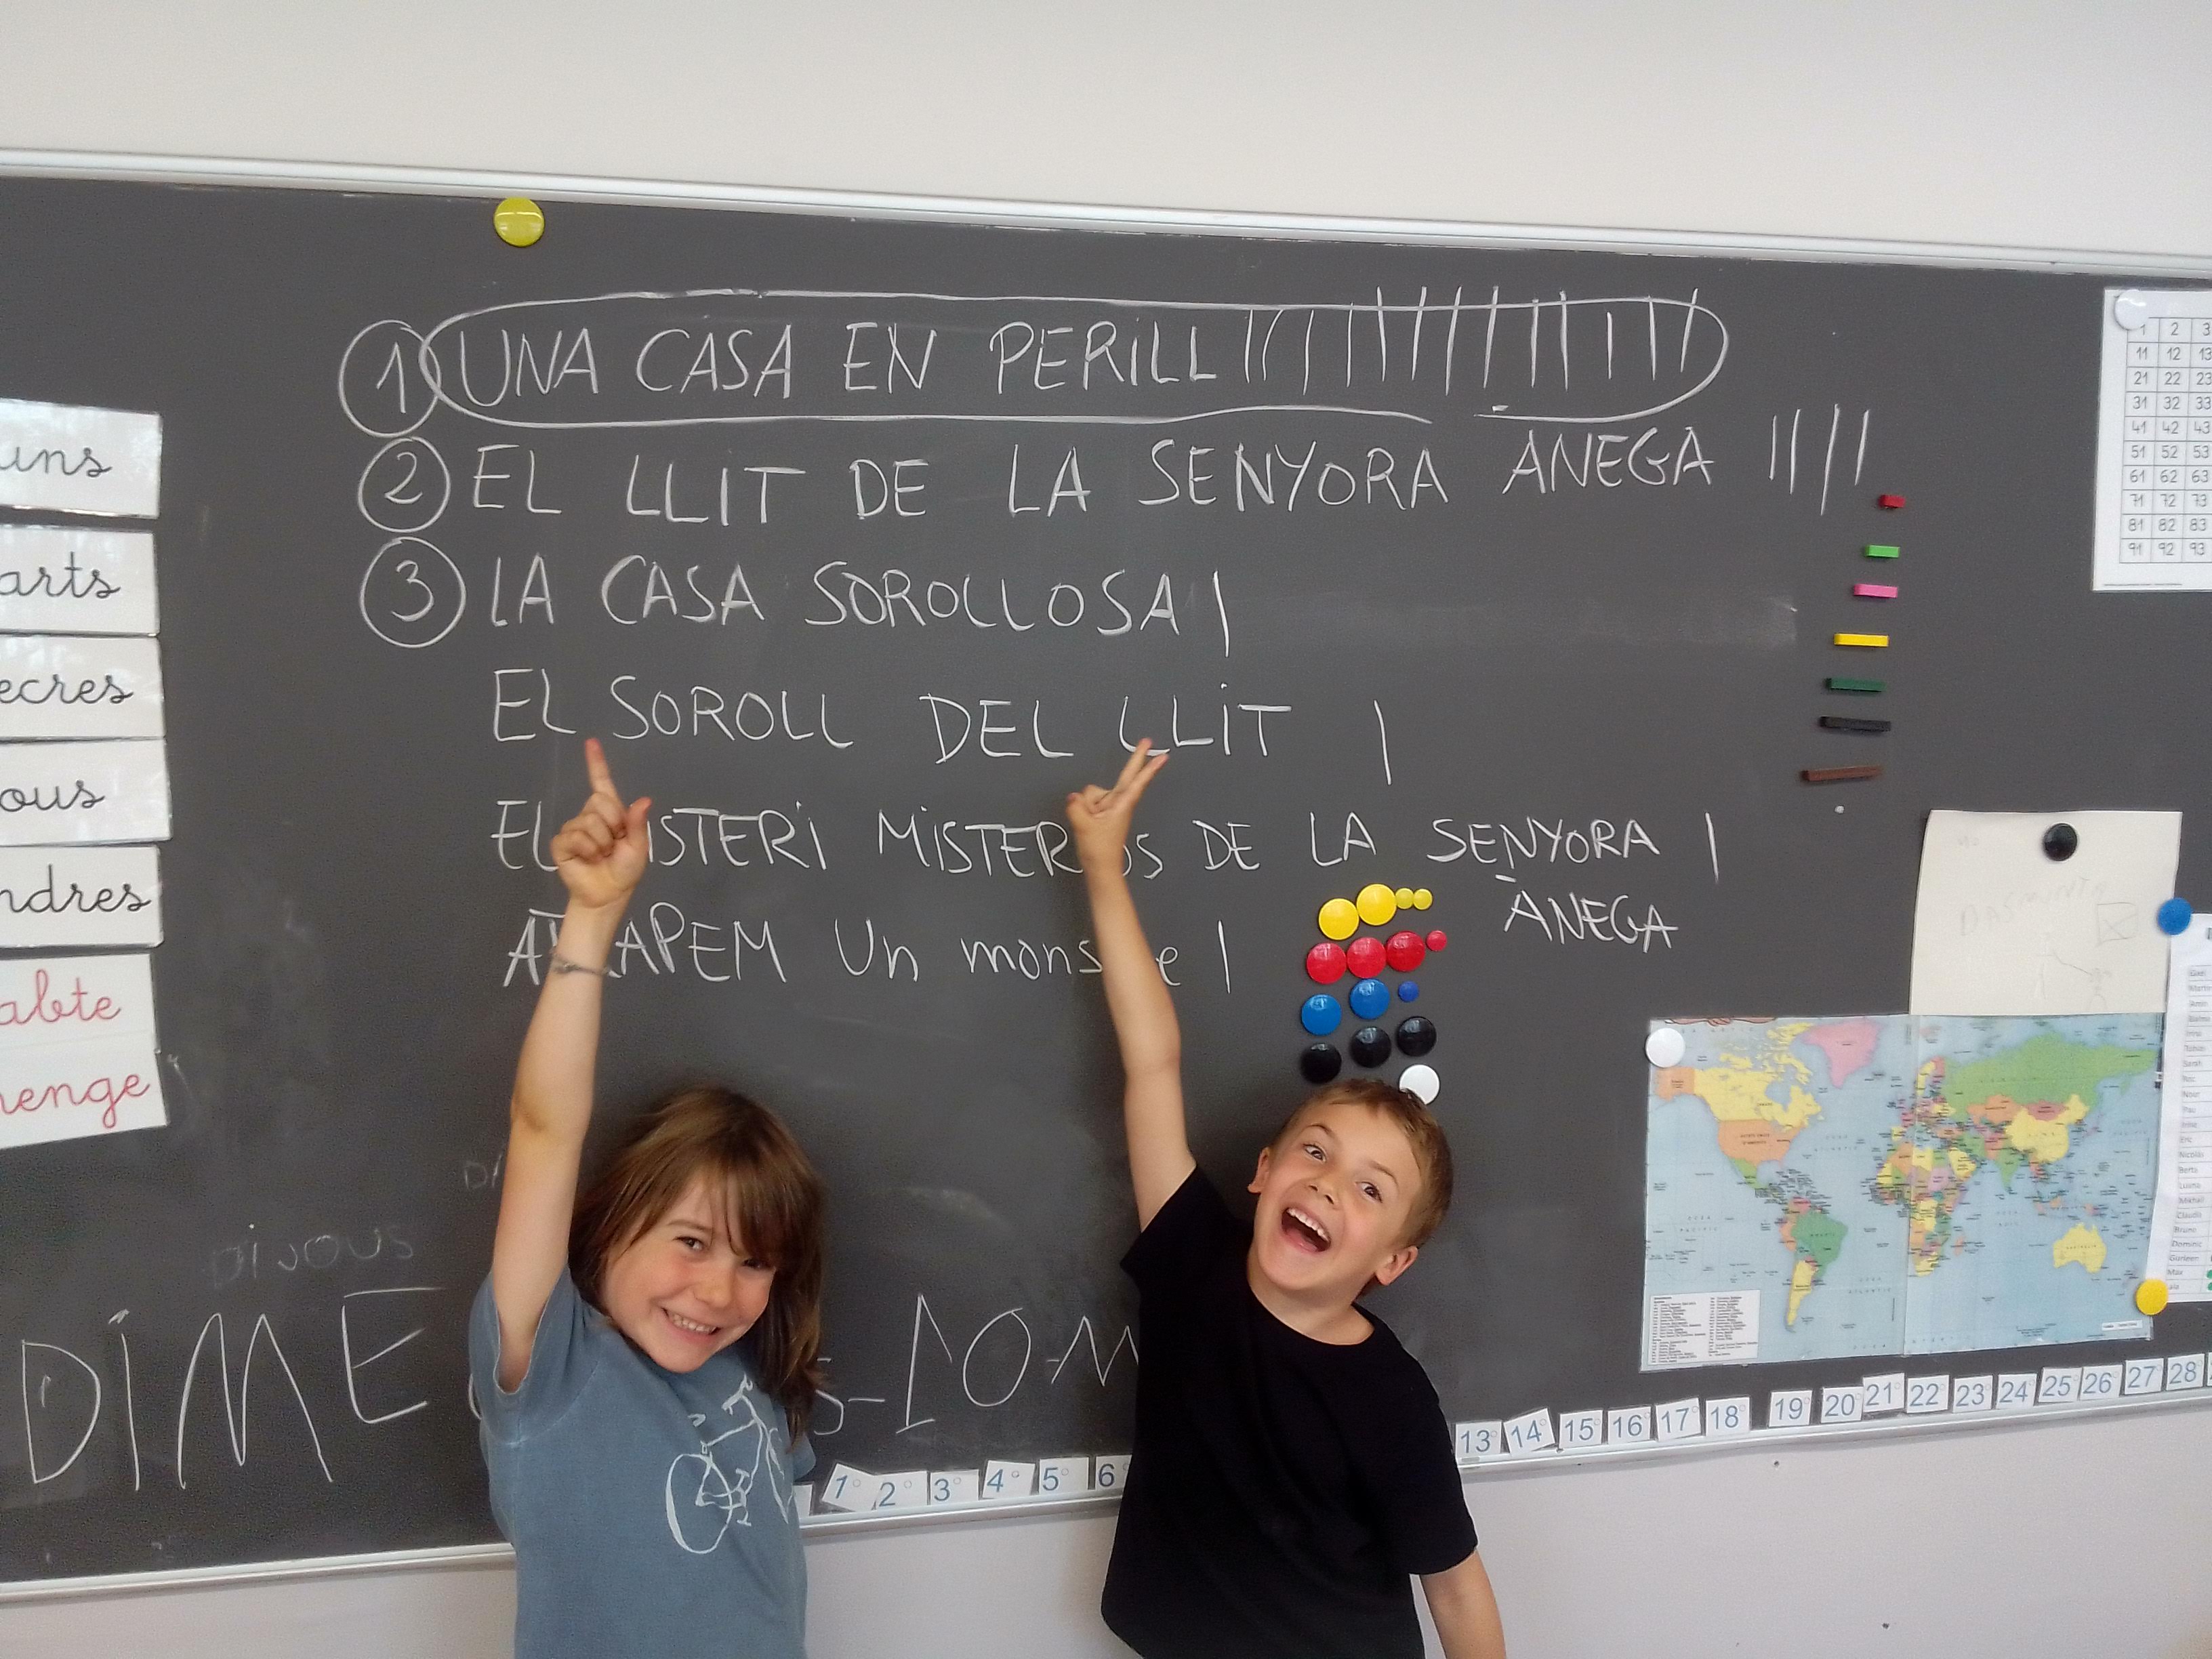 1 UNA CASA EN PERiLL
2 EL LLiT DE LA SENYORA ÀNEGA
3 LA CASA SOROLLOSA
EL SOROLL DEL LLiT
EL ISTERi MiSTER OS DE LA SENYORA
ÀNEGA
AT APEM Un mons e
uns
arts
ecres
ous
ndres
abte
enge
DiJOUS
DiME s-10-M
1 2 3
11 12 13
21 22 23
31 32 33
41 42 43
51 52 53
61 62 63
71 72 73
81 82 83
91 92 93
1° 2° 3° 4° 5° 6 13° 14° 15° 16° 17° 18° 19° 20° 21° 22° 23° 24° 25° 26° 27° 28°